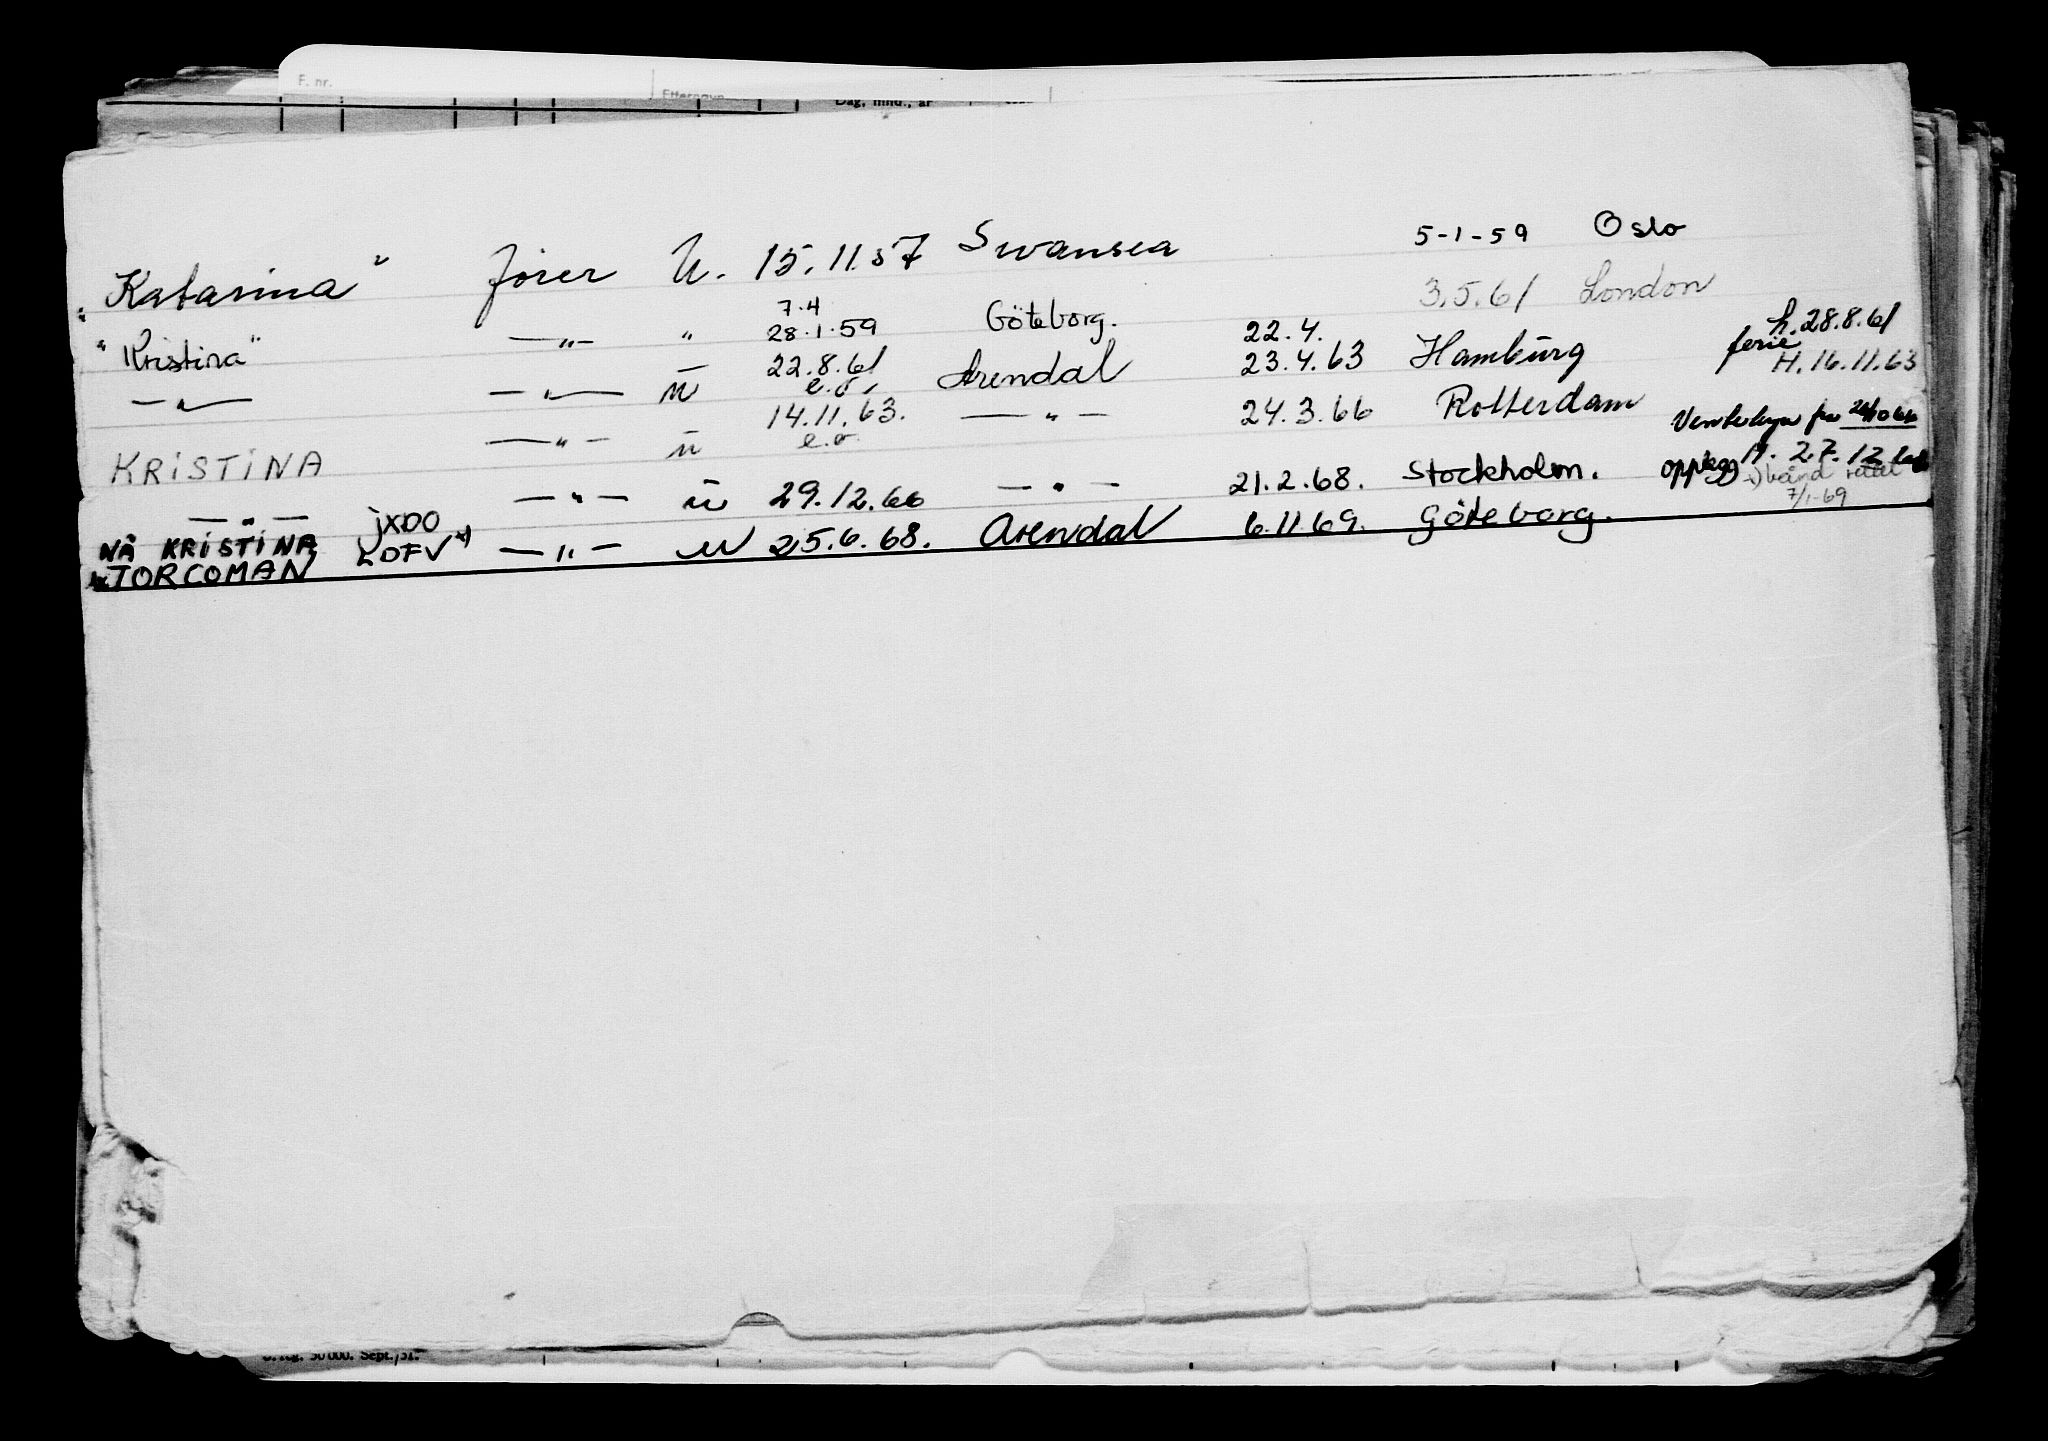 F. nr. Etternavn Dag, mnd., år
"Katarina" fører U. 15.11.57 Swansea 5-1-59 Oslo
7.4 3.5.61 London
"Kristina" — " — " 28.1.59 Göteborg. 22.4. h. 28.8.61
— " — — " — ū 22.8.61 Arendal 23.4.63 Hamburg ferie H. 16.11.63
e.o.
KRISTINA — " — ū 14.11.63. — " — 24.3.66 Rotterdam
e.o.
— " — — " — ū 29.12.66 — " — 21.2.68. Stockholm. opplegg H. 27.12
7/1-69
NÅ KRISTINA JXDO
TORCOMAN LDFV x) — " — U 25.6.68. Arendal 6.11.69. Göteborg.
50 000. Sept. 51.